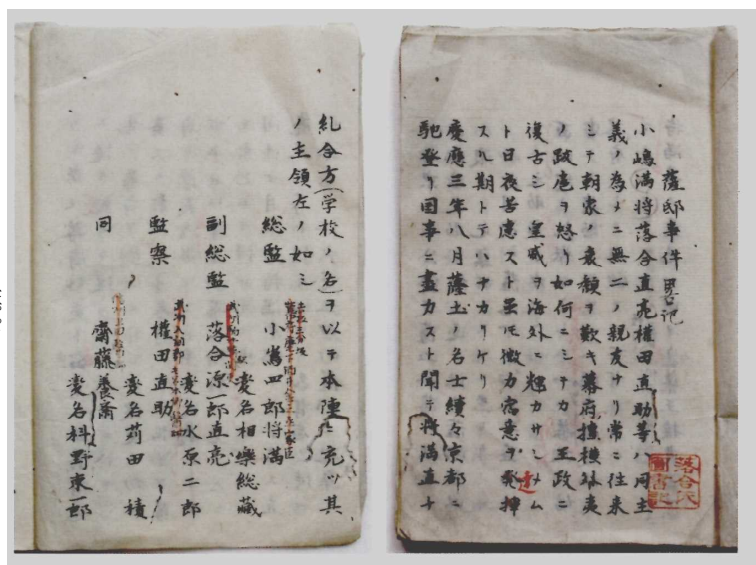 薩邸事件畧記
小嶋満将落合直亮權田直助等ハ同主
義ノ為メニ無二ノ親友ナリ常ニ往来
シテ朝家ノ衰頽ヲ歎キ幕府擅横外夷
ノ跋扈ヲ怒リ如何ニシテカ王政ニ
復古シ皇威ヲ海外ニ輝カサシメム
ト日夜苦慮スト虽モ微力宿意ヲ発揮
スル期トテハナカリケリ
慶應三年八月薩土ノ名士續々京都ニ
馳登リ国事ニ盡力スト聞テ将満直ナ
落合氏
圖書記
糺合方(学校ノ名)ヲ以テ本陣ニ充ツ其
ノ主領左ノ如シ
総監 小嶌四郎将満
変名相樂総蔵
副総監 落合源一郎直亮
変名水原二郎
監察 權田直助
変名苅田積
同 齋藤養斎
変名科野東一郎